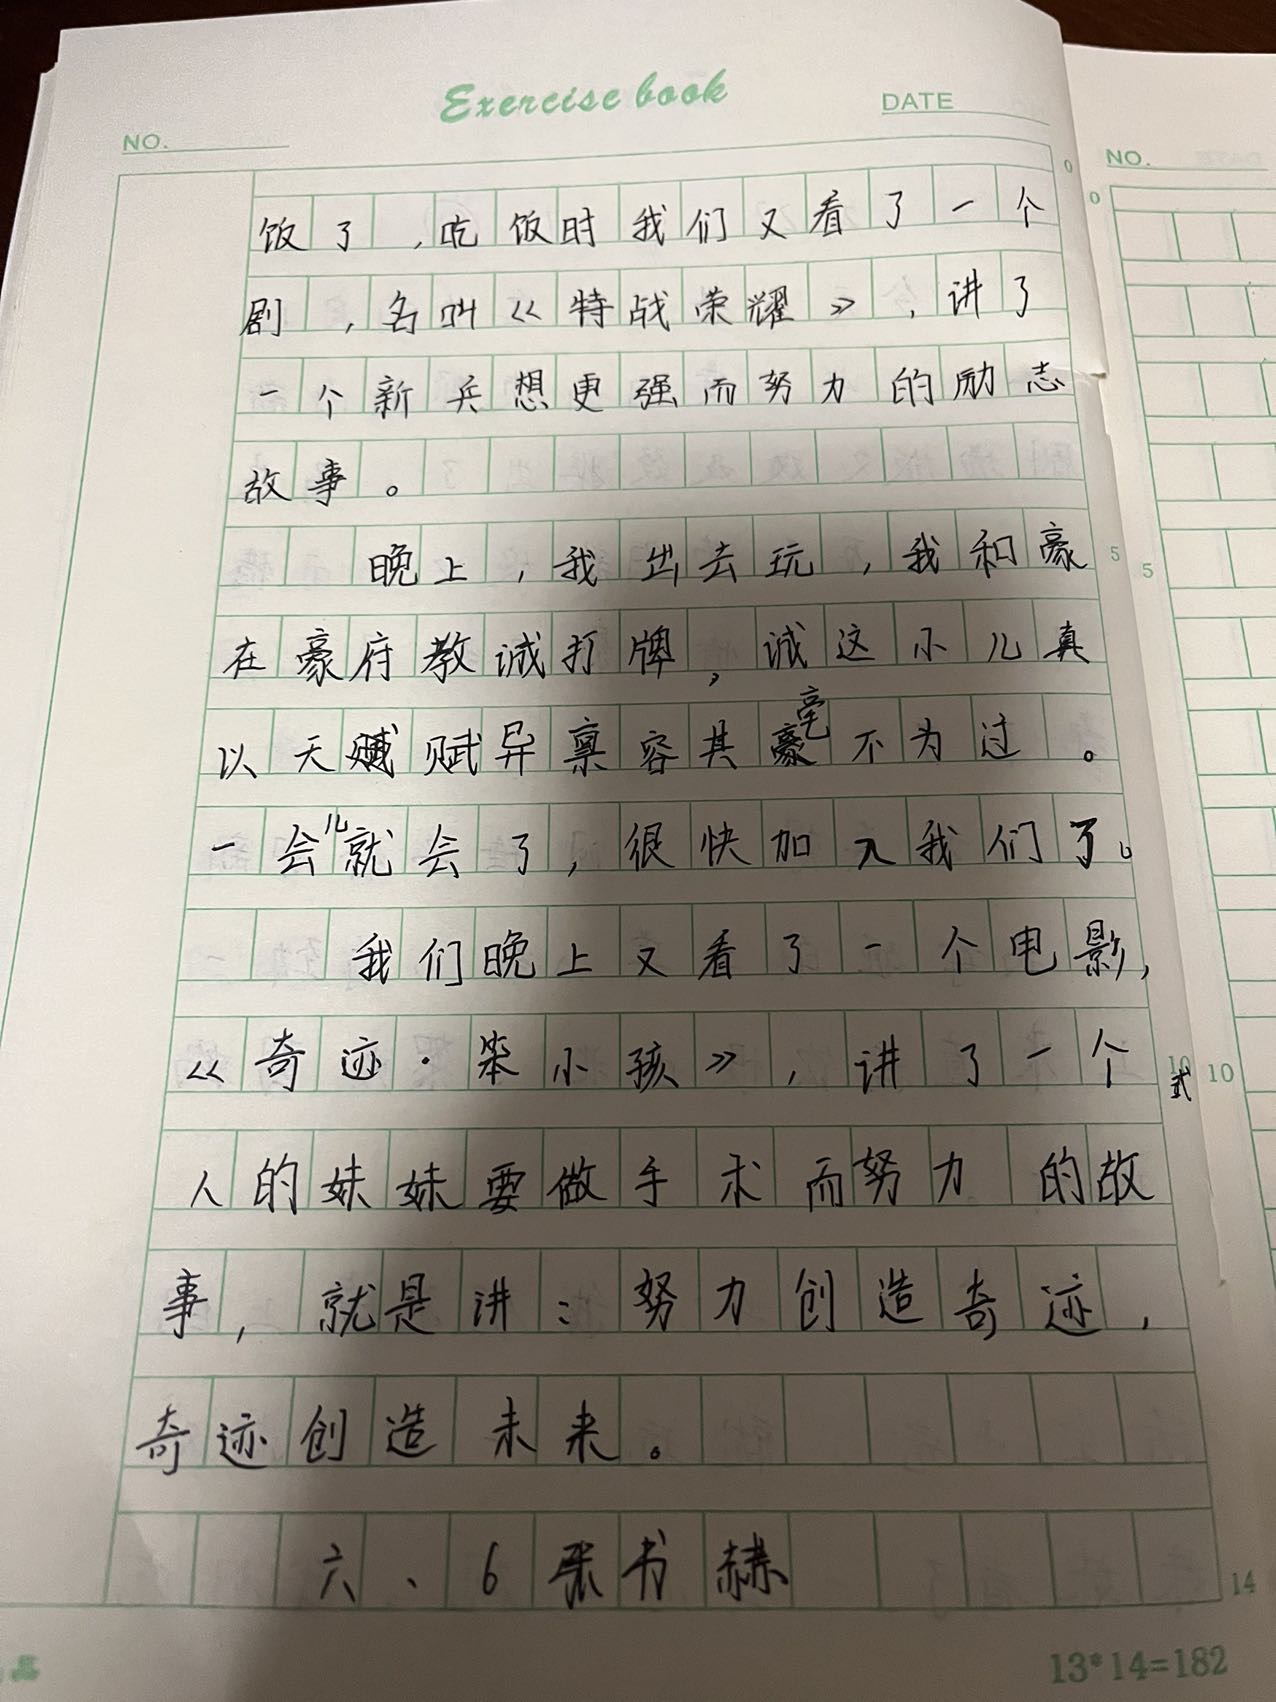 Exercise book
NO.
DATE
饭了，吃饭时我们又看了一个
剧，名叫《特战荣耀》，讲了
一个新兵想更强而努力的励志
故事。
晚上，我出去玩，我和豪
在豪府教诚打牌，诚这小儿真
以天赋异禀容其毫不为过。
一会儿就会了，很快加入我们了。
我们晚上又看了一个电影，
《奇迹·笨小孩》，讲了一个
人的妹妹要做手术而努力的故
事，就是讲：努力创造奇迹，
奇迹创造未来。
六、6 张书赫
13*14=182
NO.
0
5
10
14
0
5
10